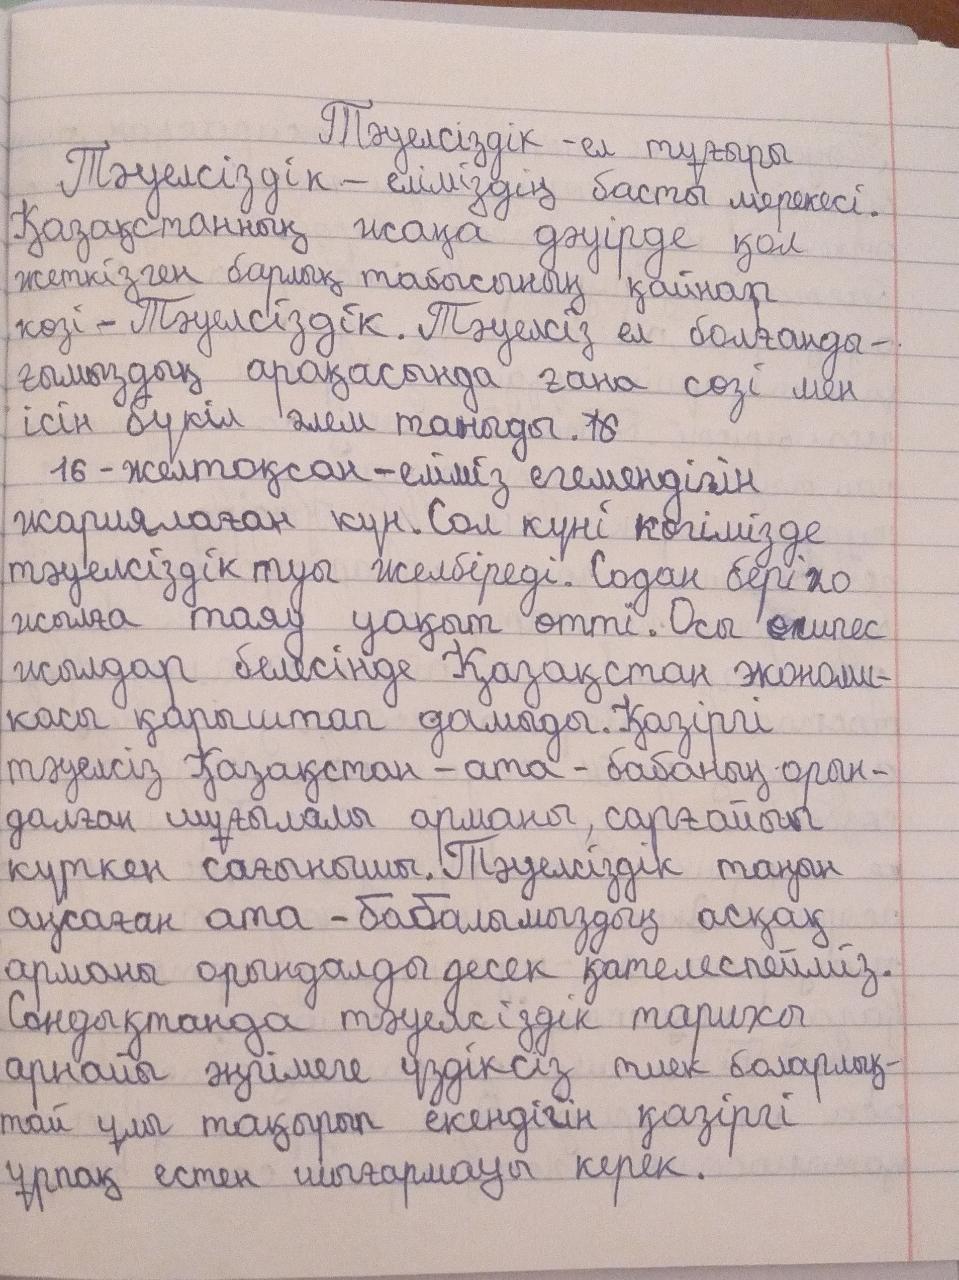 Тәуелсіздік - ел тұғыры
Тәуелсіздік – еліміздің басты мерекесі.
Қазақстанның жаңа дәуірде қол
жеткізген барлық табысының қайнар
көзі – Тәуелсіздік. Тәуелсіз ел болғанды-
ғымыздың арқасында ғана сөзі мен
ісін бүкіл әлем таныды.
16 - желтоқсан – еліміз егемендігін
жариялаған күн. Сол күні көгімізде
тәуелсіздік туы желбіреді. Содан бері
жылға таяу уақыт өтті. Осы
жылдар белесінде Қазақстан экономи-
касы қарыштап дамыды. Қазіргі
тәуелсіз Қазақстан – ата - бабаның орын-
далған шұғылалы арманы, сарғайып
күткен сағынышы. Тәуелсіздік таңын
аңсаған ата - бабалымыздың асқақ
арманы орындалды десек қателеспейміз.
Сондықтанда тәуелсіздік тарихы
арнайы әңгімеге үздіксіз тиек боларлық-
тай ұлы тақырып екендігін қазіргі
ұрпақ естен шығармауы керек.